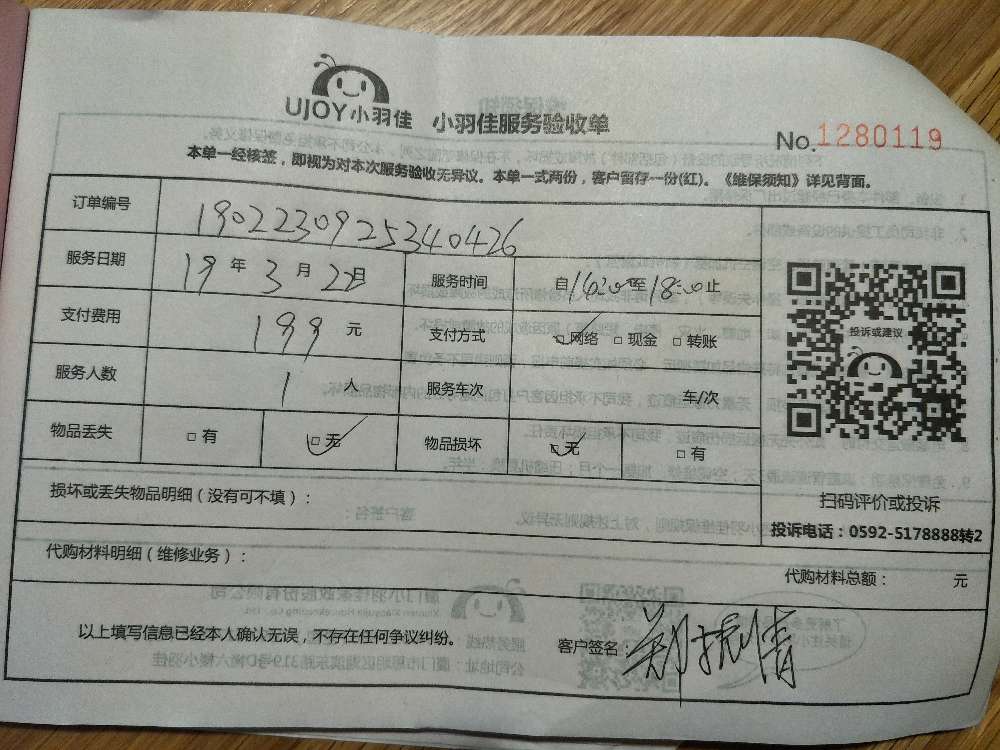 UJOY小羽佳 小羽佳服务验收单
No.1280119
本单一经核签，即视为对本次服务验收无异议。本单一式两份，客户留存一份(红)。《维保须知》详见背面。
订单编号 190223092534 0426
服务日期 19 年 3 月 22日 服务时间 自16:20至18:00止
支付费用 199 元 支付方式 □网络 □现金 □转账
投诉或建议
服务人数 1 人 服务车次 车/次
物品丢失 □有 □无 物品损坏 □无 □有
损坏或丢失物品明细（没有可不填）：
扫码评价或投诉
投诉电话：0592-5178888转2
代购材料明细（维修业务）：
代购材料总额： 元
以上填写信息已经本人确认无误，不存在任何争议纠纷。
客户签名： 郑振情